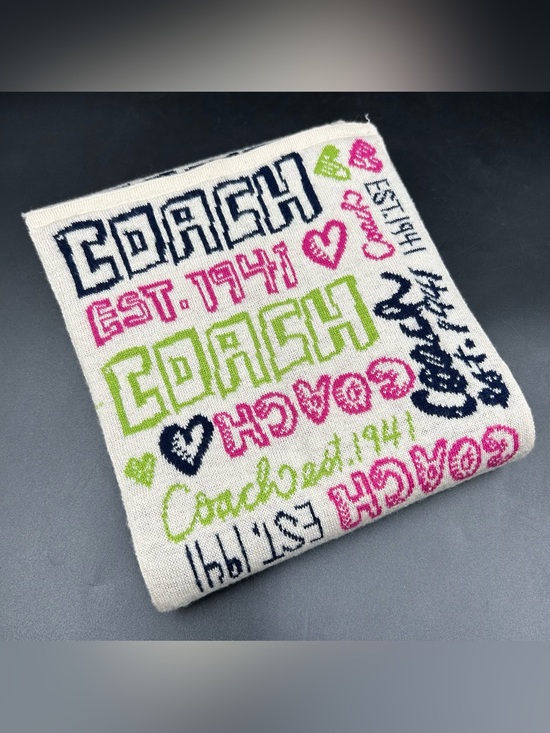 COACH
EST. 1941
Coach
EST. 1941
COACH
Coach
EST. 1941
COACH
Coach est. 1941
COACH
EST. 1941